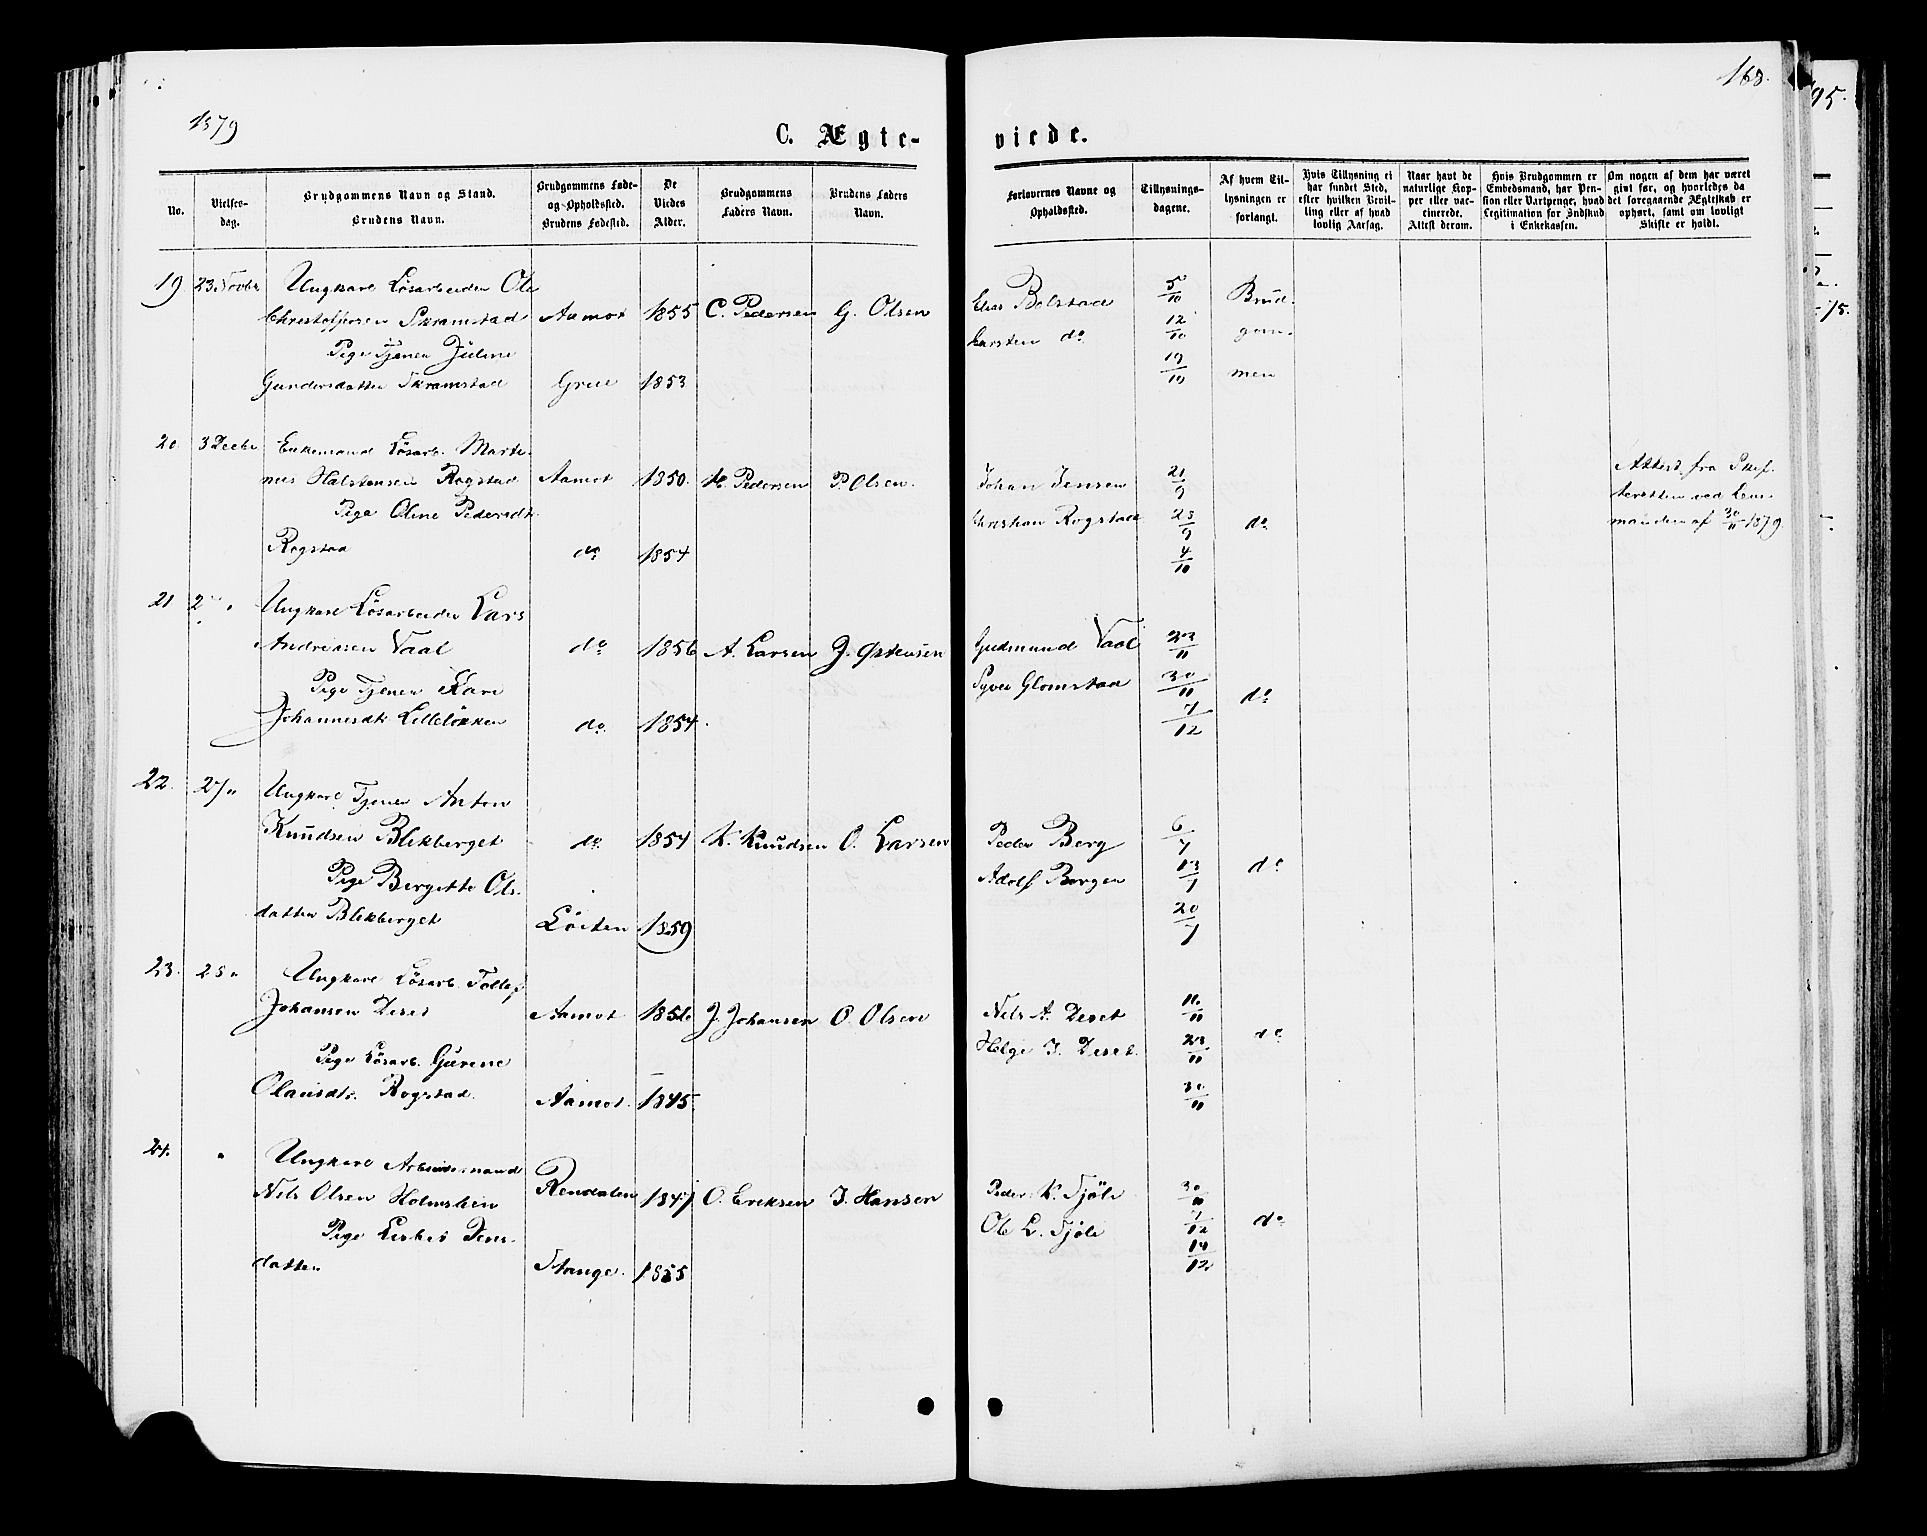 1879
168.
C. Ægte-
viede.
No.
Vielses-
dag.
Brudgommens Navn og Stand.
Brudens Navn.
Brudgommens Føde-
og Opholdssted.
Brudens Fødested.
De
Viedes
Alder.
Brudgommens
Faders Navn.
Brudens Faders
Navn.
Forlovernes Navne og
Opholdssted.
Tillysnings-
dagene.
Af hvem Til-
lysningen er
forlangt.
Hvis Tillysning ei
har fundet Sted,
efter hvilken Bevil-
ling eller af hvad
lovlig Aarsag.
Naar havt de
naturlige Kop-
per eller vac-
cinerede.
Attest derom.
Hvis Brudgommen er
Embedsmand, har Pen-
sion eller Vartpenge, hvad
Legitimation for Indskud
i Enkekassen.
Om nogen af dem har været
givt før, og hvorledes da
det foregaaende Ægteskab er
ophørt, samt om lovligt
Skifte er holdt.
19 23 Novbr Ungkarl Løsarbeider Ole
Christoffersen Skramstad Aamot 1855 C. Pedersen G. Olsen
Pige Tjener Juline
Gundersdatter Skramstad Grue 1853
Elias Bolstad 5/10 Brud-
Carsten do 12/10 gom-
19/10 men
20 3 Decbr Enkemand Løsarb. Marte-
nus Halstensen Rogstad Aamot 1850. H. Pedersen P. Olsen.
Pige Oline Pedersdtr
Rogstad do 1854
Johan Jensen 21/9
Christian Rogstad 28/9 do
4/10
Attest fra Skif-
teretten ved Lens-
manden af 30/11 1879
21 2
Ungkarl Løsarbeider Lars
Andreasen Vaal do 1856 A. Larsen J. Østensen
Pige Tjener Kari
Johannesdtr Lilleløkken do. 1854.
Gudmund Vaal 23/11
Syver Glomstad 30/11 do
7/12
22. 27 " Ungkarl Tjener Anton
Knudsen Blikberget do. 1854 K. Knudsen O. Larsen
Pige Bergitte Ols-
datter Blikberget Løiten 1859
Peder Berg 6/7
Adolf Borgen 13/7 do
20/7
23. 28 " Ungkarl Løsarb. Tollef
Johansen Deset Aamot 1856 J. Johansen O. Olsen
Pige Løsarb. Gurene
Olausdtr. Rogstad Aamot. 1845.
Nils A. Deset 16/11
Helge J. Deset. 23/11 do
30/11
24. " Ungkarl Arbeidsmand
Nils Olsen Holmstien Rendalen 1847 O. Eriksen J. Hansen
Pige Lisbet Jens-
datter Stange. 1855
Peder K. Sjøli 30/11
Ole L. Sjøli 7/12 do
14/12
95.